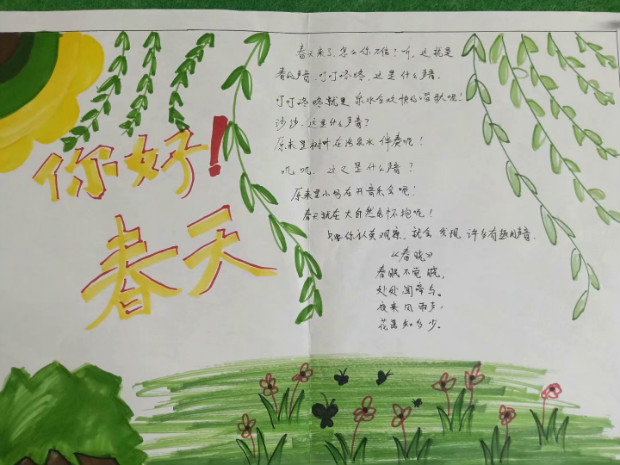 你好!
春天
春天来了,怎么你准?听,这就是
春的声音,叮叮咚咚,这是什么声
叮叮咚咚就是泉水在欢快的唱歌呢!
沙沙,这是什么声音?
原来是树叶在沙沙伴奏呢!
叽叽,这又是什么声音?
原来是小鸟在开音乐会呢!
春天就在大自然的怀抱呢!
你认真观察,就会发现许多有趣的声音.
《春晓》
春眠不觉晓,
处处闻啼鸟。
夜来风雨声,
花落知多少。